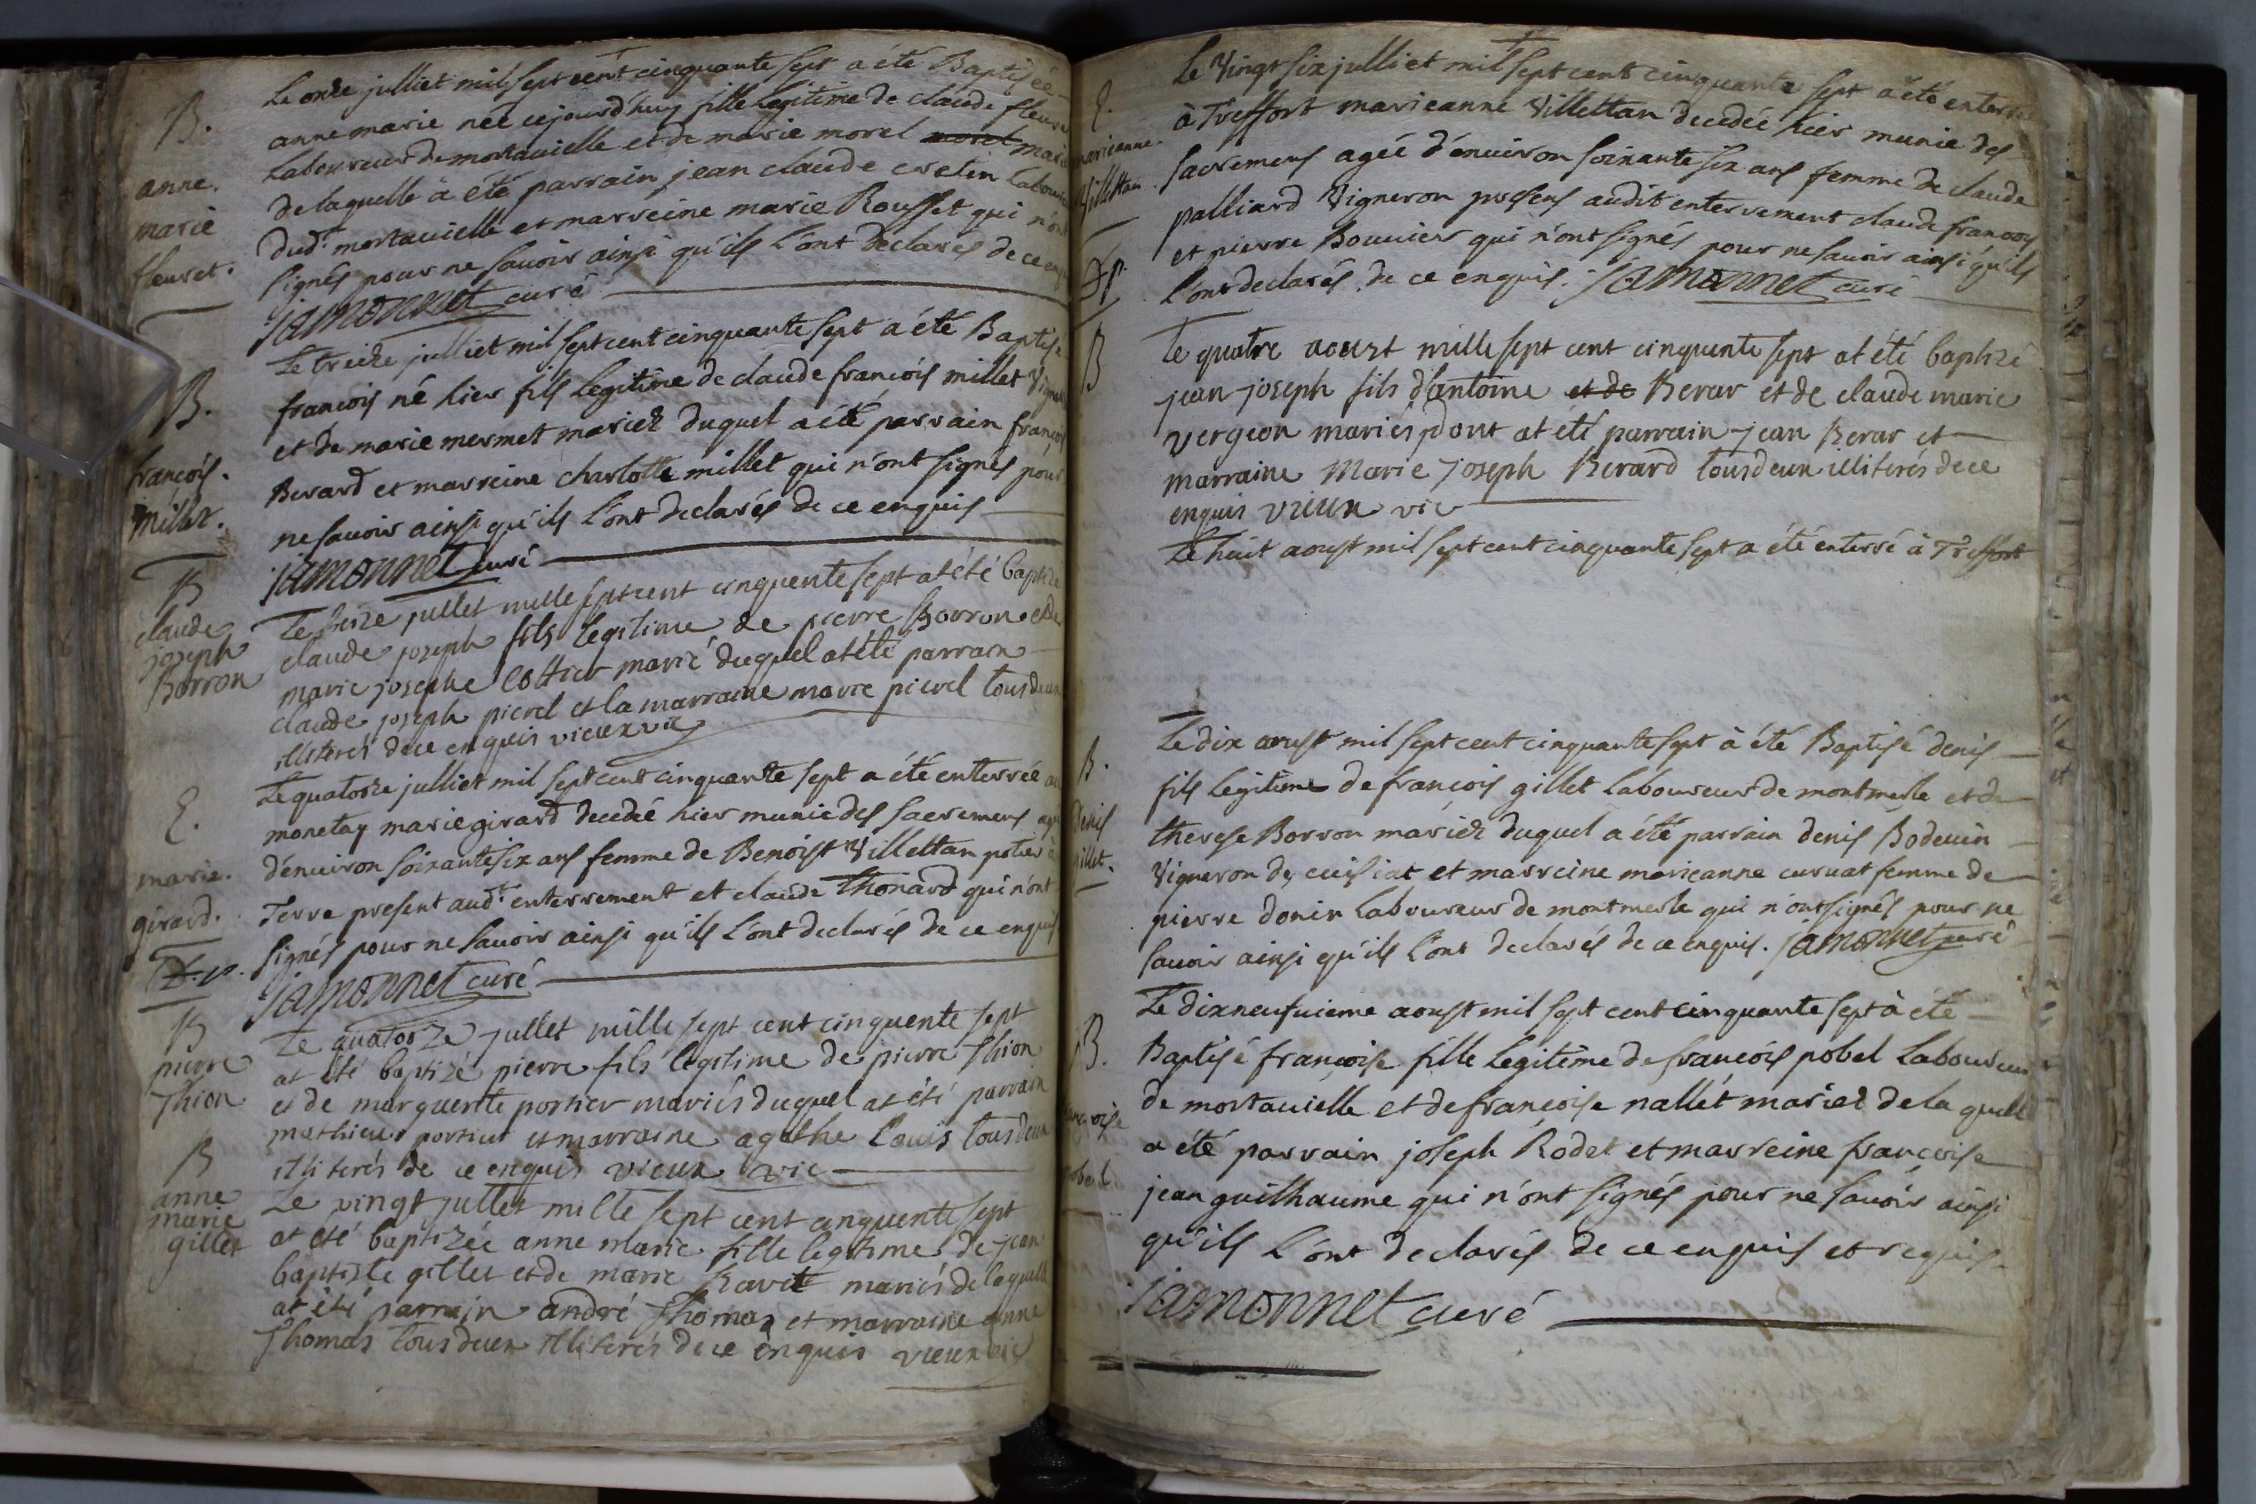 B.
anne.
marie
fleuret.
Le onze julliet mil sept cent cinquante sept a été Baptisée
anne marie née cejourd'huy fille legitime de claude fleuret
Laboureur de mortavielle et de marie morel morel mariez
de laquelle à été parrain jean claude cretin Laboureur
dudt mortavielle et marreine marie Rousset qui n'ont
signés pour ne savoir ainsi qu'ils l'ont déclarés de ce enquis
jamonnet curé
B.
françois.
millet.
Le treize julliet mil sept cent cinquante sept a été Baptisé
françois né hier fils legitime de claude françois millet Vigneron
et de marie mermet mariez duquel a été parrain françois
Berard et marreine charlotte millet qui n'ont signés pour
ne savoir ainsi qu'ils l'ont declarés de ce enquis
jamonnet curé
B
claude
joseph
Borron
Le treize jullet mille sept cent cinquente sept at été baptizé
claude joseph fils legitime de pierre Borron et de
marie josephe Cottier marié duquel at été parrain
claude joseph pierel et la marraine marie pierel tous deux
illiterés de ce enquis vieux vic
E.
marie.
girard.
Le quatorze julliet mil sept cent cinquante sept a été enterrée au
monetay marie girard decedée hier munie des sacremens agée
d'environ soixante six ans femme de Benoist Villettan potier à
Terre present audt enterrement et claude Thonard qui n'ont
signés pour ne savoir ainsi qu'ils l'ont declarés de ce enquis
jamonnet curé
B
pierre
Thion
Le quatorze jullet mille sept cent cinquente sept
at été baptizé pierre fils legitime de pierre Thion
et de marguerite portier mariés duquel at été parrain
mathieu portier et marraine agathe Louis tous deux
illiterés de ce enquis vieux vic
B
anne
marie
gillet
Le vingt jullet mille sept cent cinquente sept
at été baptizée anne marie fille legitime de jean
baptiste gillet et de marie Ravet mariés de laquelle
at été parrain andré Thomas et marraine anne
Thomas tous deux illiterés de ce enquis vieux vic
E.
marieanne.
Villettan
Le Vingt six julliet mil sept cent cinquante sept a été enterrée
à Treffort marieanne Villettan decedée hier munie des
sacremens agée d'environ soixante six ans femme de claude
palliard Vigneron presens audit enterrement claude françois
et pierre Bouvier qui n'ont signés pour ne savoir ainsi qu'ils
l'ont declarés de ce enquis. jamonnet curé
B
Le quatre aoust mille sept cent cinquente sept at été baptizé
jean joseph fils d'antoine et de Berar et de claude marie
vergeon mariés dont at été parrain jean Berar et
marraine Marie joseph Berard tous deux illiterés de ce
enquis vieux vic
Le huit aoust mil sept cent cinquante sept a été enterré à Treffort
B.
denis
gillet.
Le dix aoust mil sept cent cinquante sept à été Baptisé denis
fils legitime de françois gillet Laboureur de montmerle et de
therese Borron mariez duquel a été parrain denis Bodevin
Vigneron de cuisiat et marreine marieanne curvat femme de
pierre donin Laboureur de montmerle qui n'ont signés pour ne
savoir ainsi qu'ils l'ont declarés de ce enquis. jamonnet curé
B.
françoise
pobel
Le dixneufvieme aoust mil sept cent cinquante sept à été
Baptisé françoise fille legitime de françois pobel Laboureur
de mortavielle et de françoise nallét mariez de la quelle
a été parrain joseph Rodet et marreine françoise
jean guilhaume qui n'ont signés pour ne savoir ainsi
qu'ils l'ont declarés de ce enquis et requis.
jamonnet curé